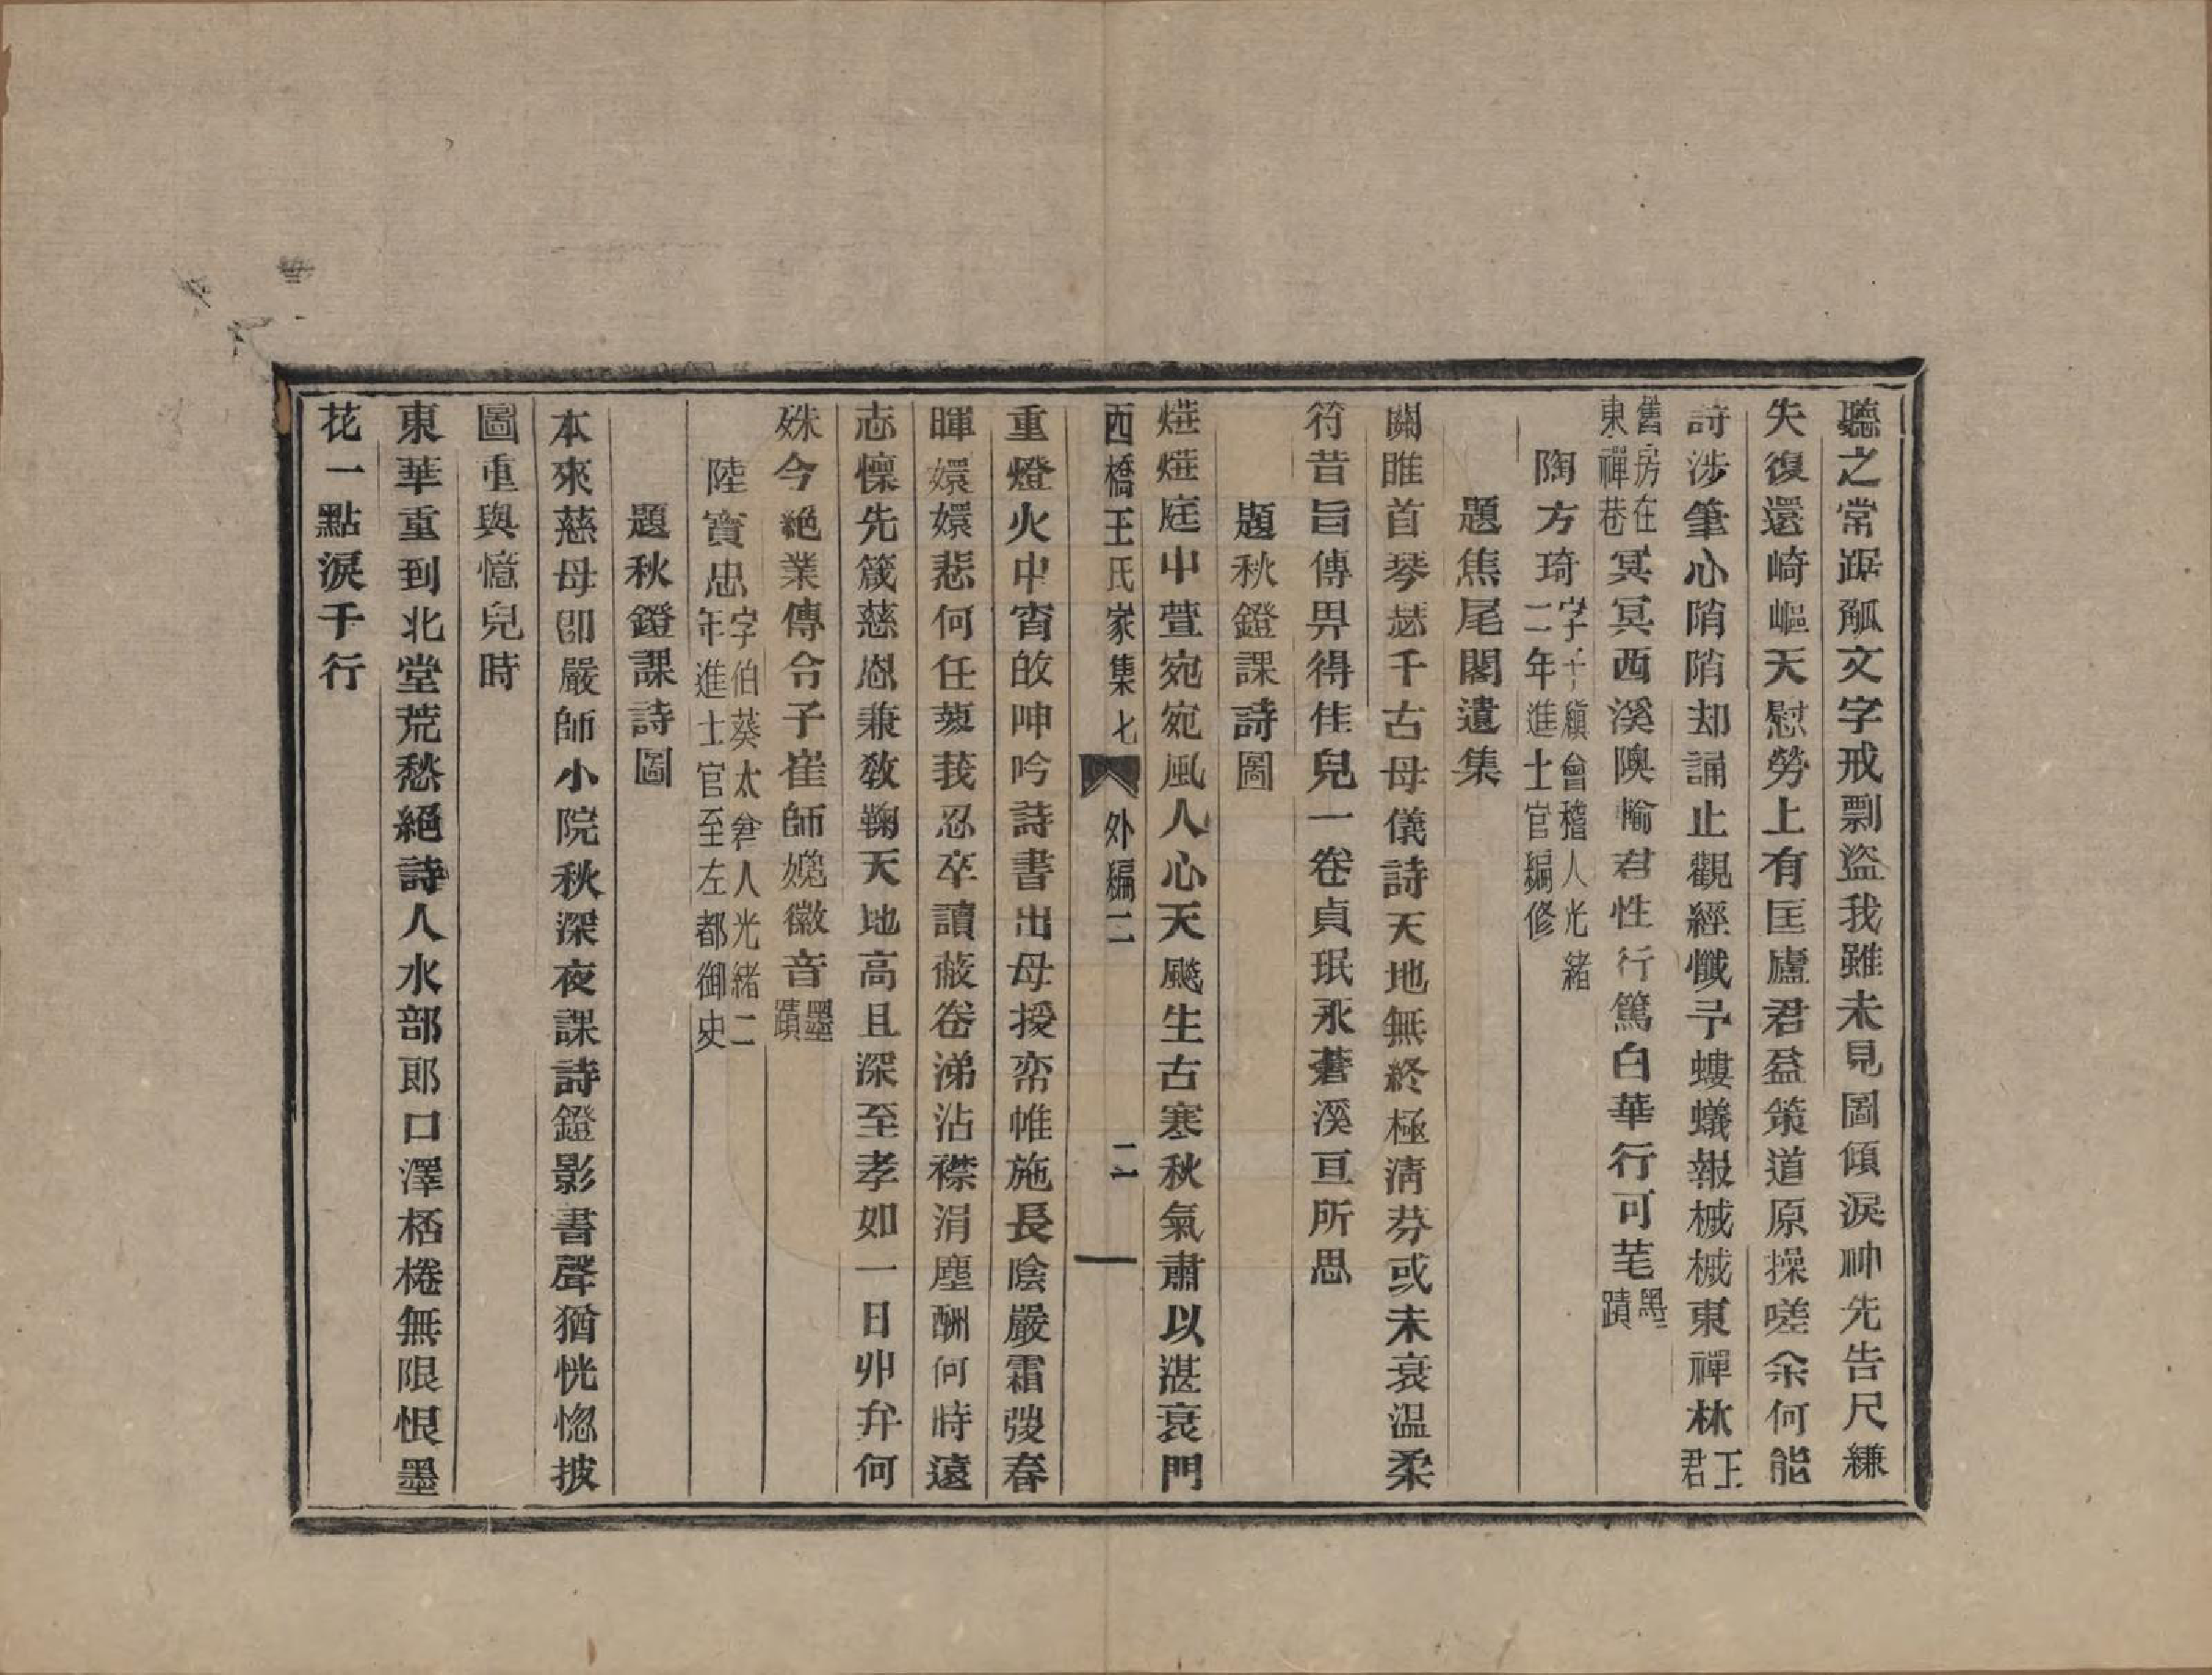 聽之常踞觚文字戒剽盜我雖未見圖傾淚神先告尺縑
失復還崎嶇天慰勞上有匡廬君益策道原操嗟余何能
詩涉筆心陗陗却誦止觀經懺予螻蟻報槭槭東禪林王君
舊房在東禪巷冥冥西溪隩愉君性行篤白華行可芼墨蹟
陶方琦字子縝會稽人光緒二年進士官編修
題焦尾閣遺集
關雎首琴瑟千古母儀詩天地無終極淸芬或未衰溫柔
符昔旨傳畀得佳兒一卷貞珉永蒼溪亘所思
題秋鐙課詩圖
焠焠庭中萱宛宛風人心天飈生古寒秋氣肅以湛衰門
西橋王氏家集七
外編二
二
重燈火中宵故呻吟詩書出母授帘帷施長陰嚴霜弢春
暉嬛嬛悲何任蓼莪忍卒讀蔽卷涕沾襟涓塵酬何時遠
志懍先箴慈恩兼敎鞠天地高且深至孝如一日丱弁何
殊今絕業傳令子崔師媲徽音墨蹟
陸寳忠字伯葵太倉人光緒二年進士官至左都御史
題秋鐙課詩圖
本來慈母卽嚴師小院秋深夜課詩鐙影書聲猶恍惚披
圖重與憶兒時
東華重到北堂荒愁絕詩人水部郎口澤桮棬無限恨墨
花一點淚千行